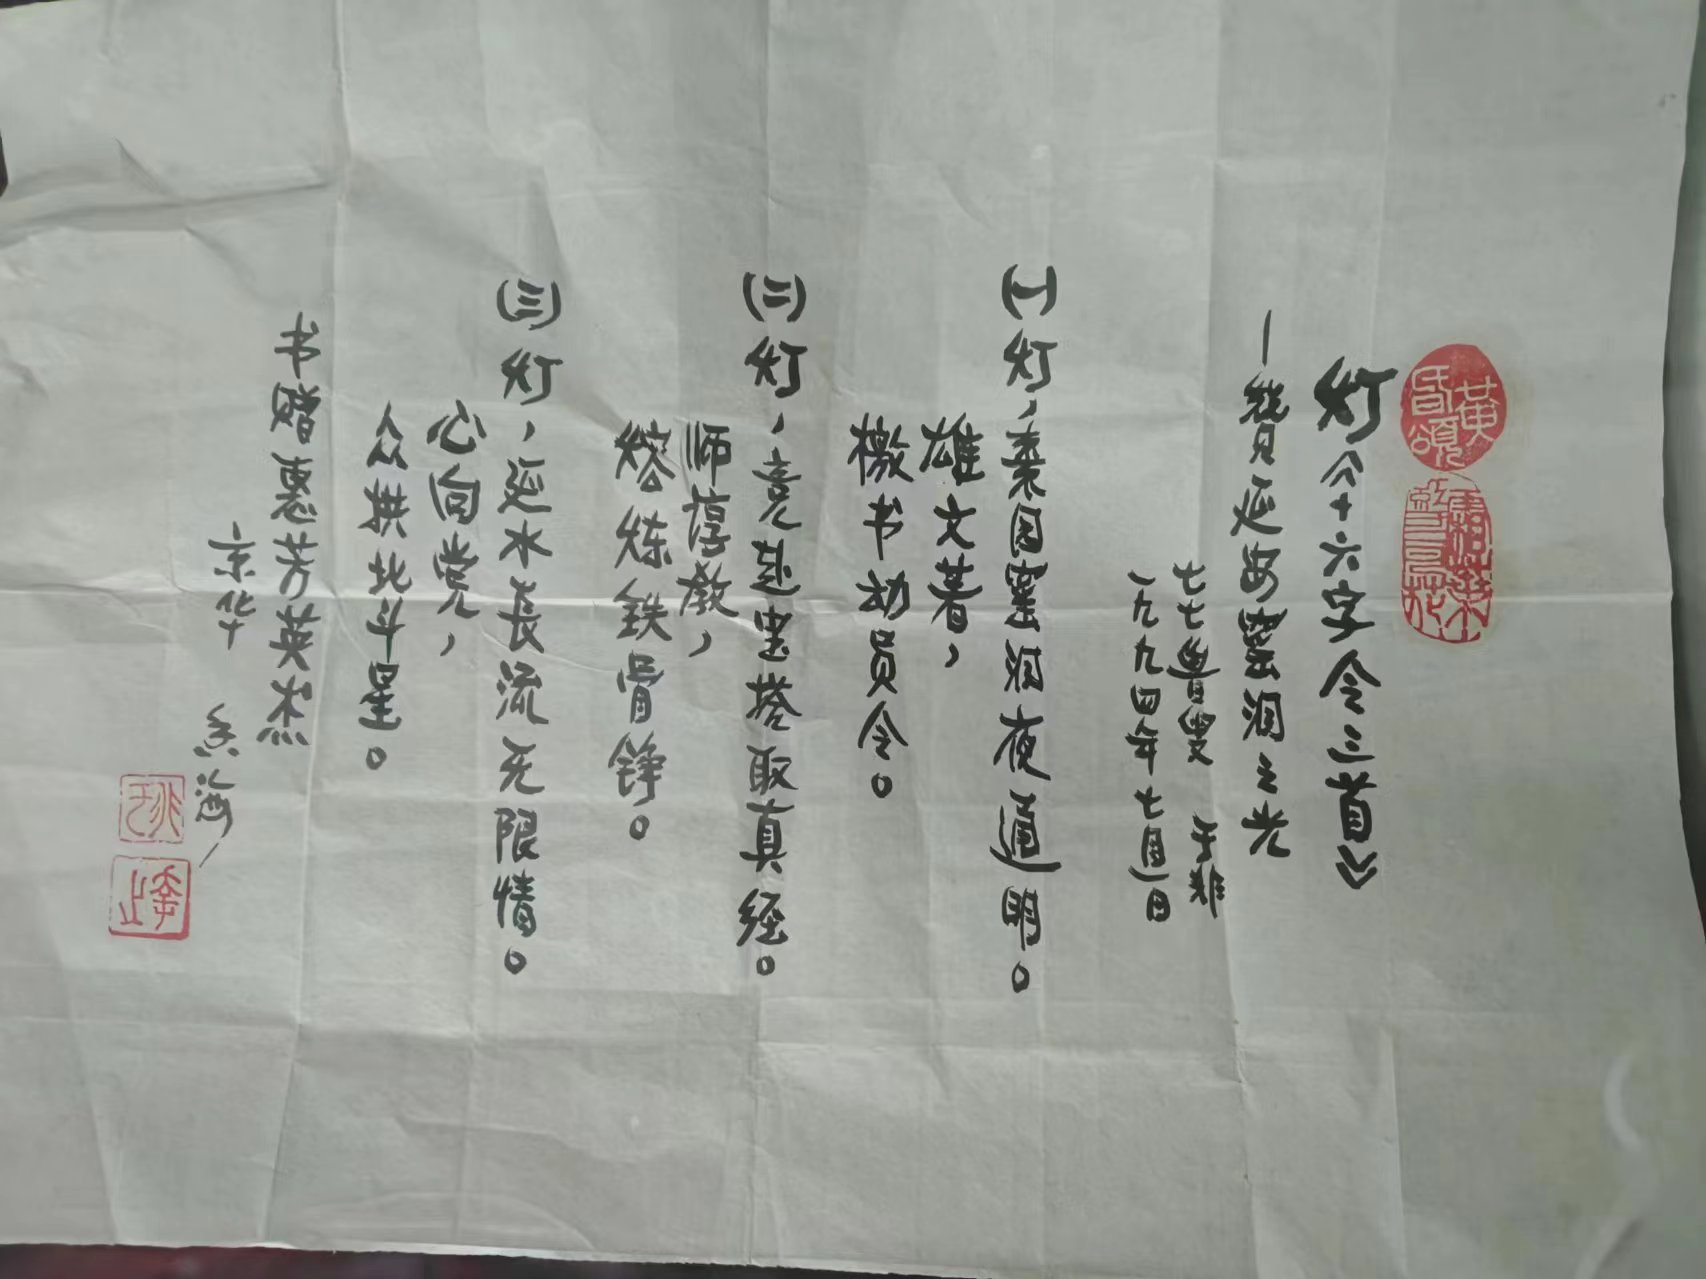 黄昏颂
霜叶红于二月花
灯《十六字令三首》
—赞延安窑洞之光
七七曹叟 于非
八九年七月一日
(一)灯，枣园窑洞夜通明。
雄文著，
檄书动员令。
(二)灯，竞赴宝塔取真经。
师谆教，
熔炼铁骨铮。
(三)灯，延水长流无限情。
心向党，
众拱北斗星。
书赠惠芳英杰
京华 海